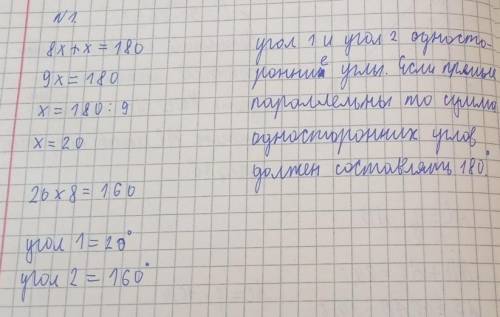 N1.
8x+x=180
9x=180
x=180:9
x=20
20×8=160
угол 1=20°
угол 2=160°
угол 1 и угол 2 односто-
ронние углы. Если прямые
параллельны то сумма
односторонних углов
должен составлять 180°.